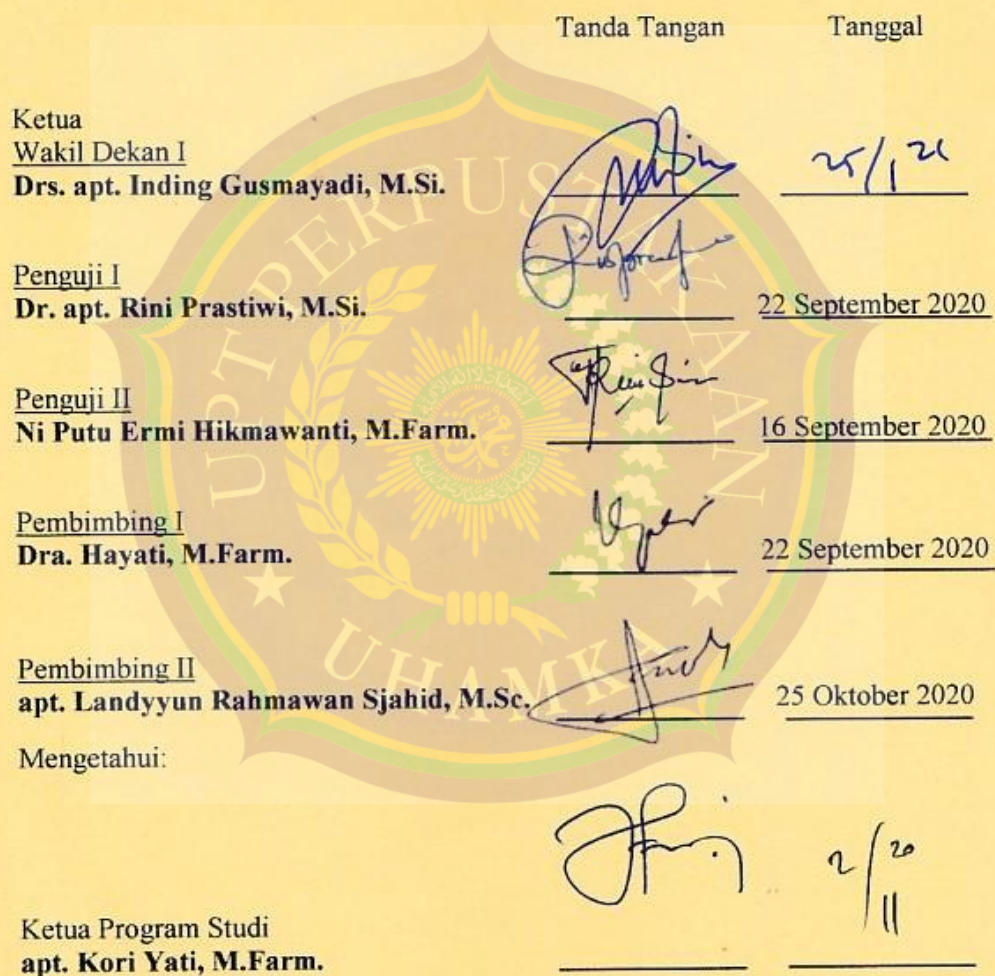 Tanda Tangan Tanggal
Ketua
Wakil Dekan I
Drs. apt. Inding Gusmayadi, M.Si. 25/1 21
Penguji I
Dr. apt. Rini Prastiwi, M.Si. 22 September 2020
Penguji II
Ni Putu Ermi Hikmawanti, M.Farm. 16 September 2020
Pembimbing I
Dra. Hayati, M.Farm. 22 September 2020
Pembimbing II
apt. Landyyun Rahmawan Sjahid, M.Sc. 25 Oktober 2020
Mengetahui:
2/11 20
Ketua Program Studi
apt. Kori Yati, M.Farm.
UPT PERPUSTAKAAN
UHAMKA